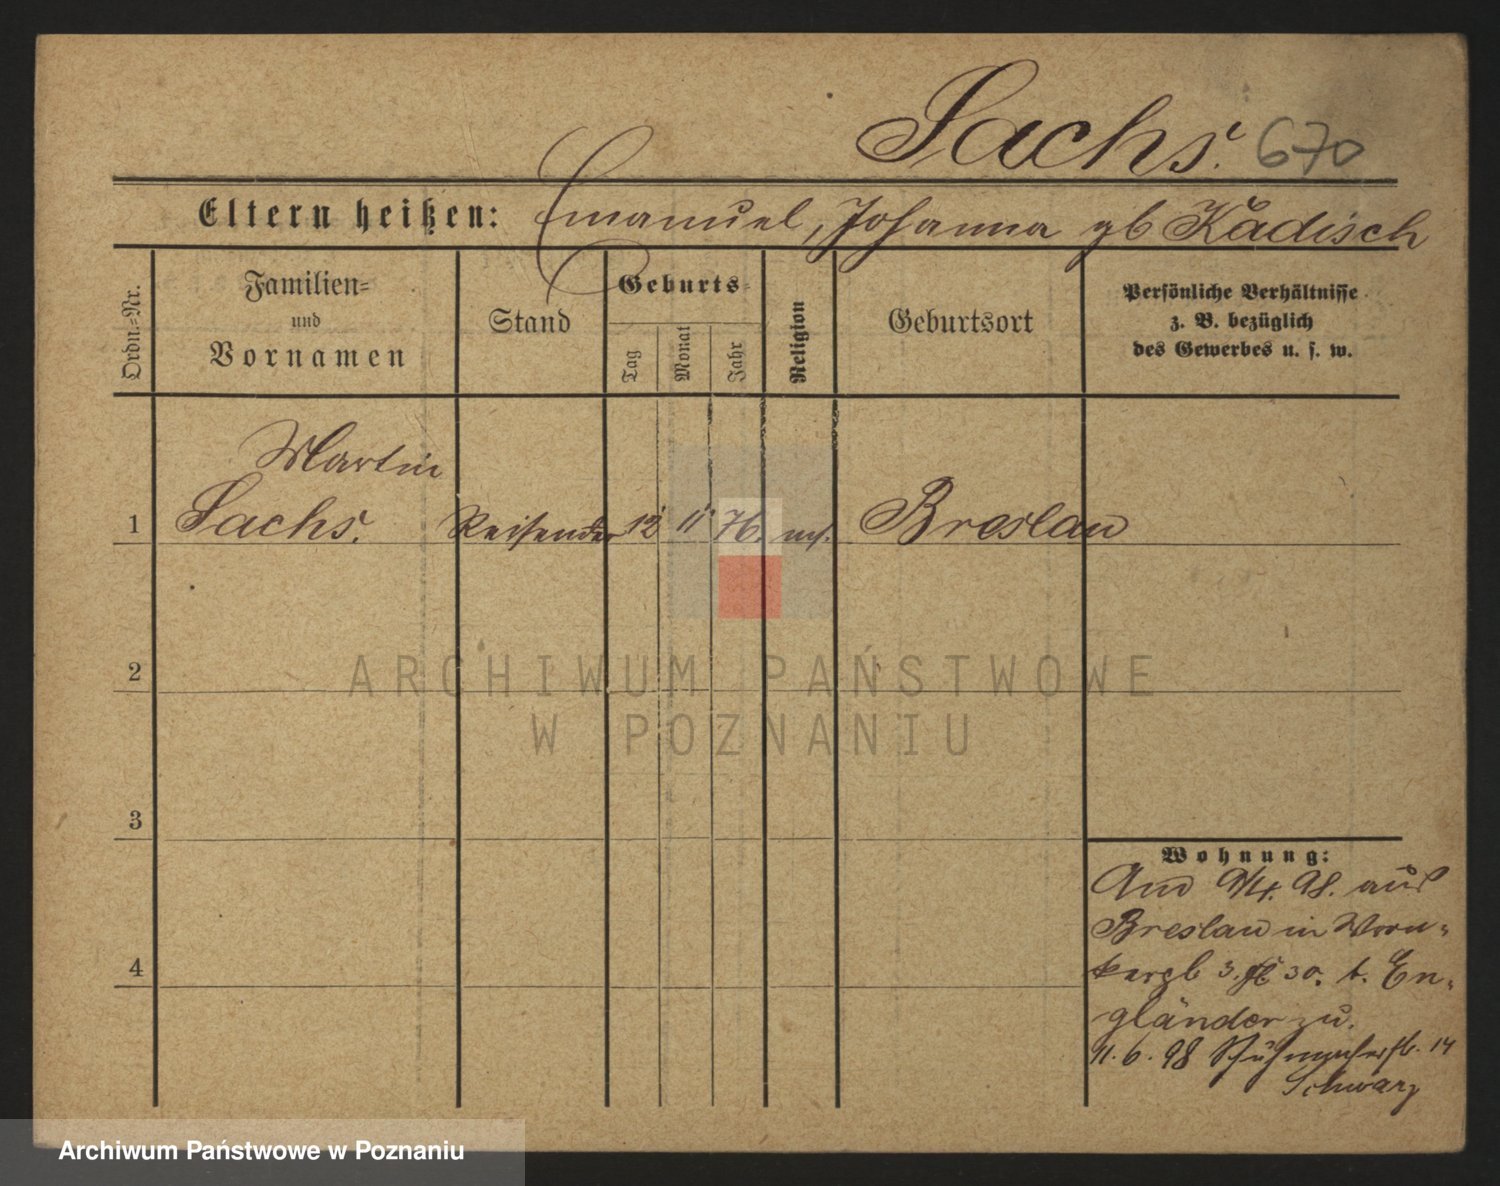 Sachs. 670
Eltern heißen: Emanuel, Johanna gb Kadisch
Ordn.=Nr.
Familien=
und
Vornamen
Stand
Geburts=
Tag
Monat
Jahr
Religion
Geburtsort
Persönliche Verhältnisse
z. B. bezüglich
des Gewerbes u. s. w.
Martin
1 Sachs. Reisender 12 11 76. Breslau
2
ARCHIWUM PAŃSTWOWE
W POZNANIU
3
Wohnung:
9/4. 98. aus
Breslau in
3. 30. b. En-
4
gländer zu.
11. 6. 98 Schuhmacherstr. 14
Schwarz
Archiwum Państwowe w Poznaniu